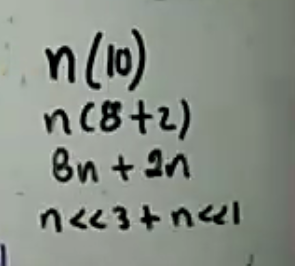 n(10)
n(8+2)
8n + 2n
n<<3 + n<<1